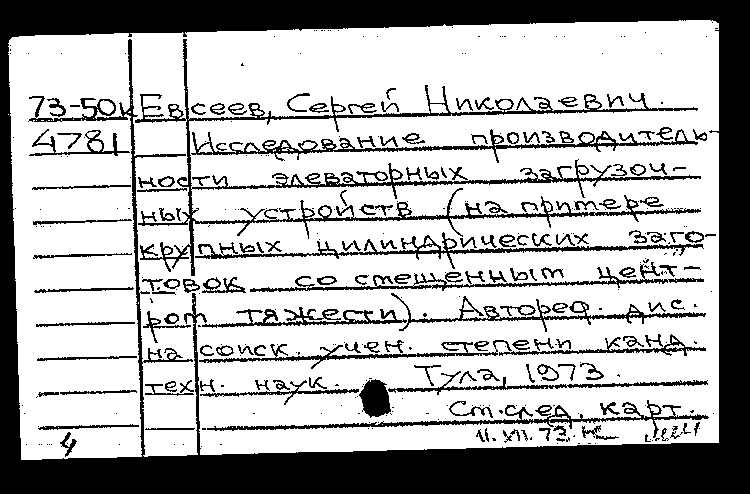 73-50к Евсеев, Сергей Николаевич.
4781 Исследование производитель-
ности элеваторных загрузоч-
ных устройств (на примере
крупных цилиндрических заго-
товок со смещенным цент-
ром тяжести). Автореф. дис.
на соиск. учен. степени канд.
техн. наук. Тула, 1973.
См. след. карт.
4 11.VII.73.